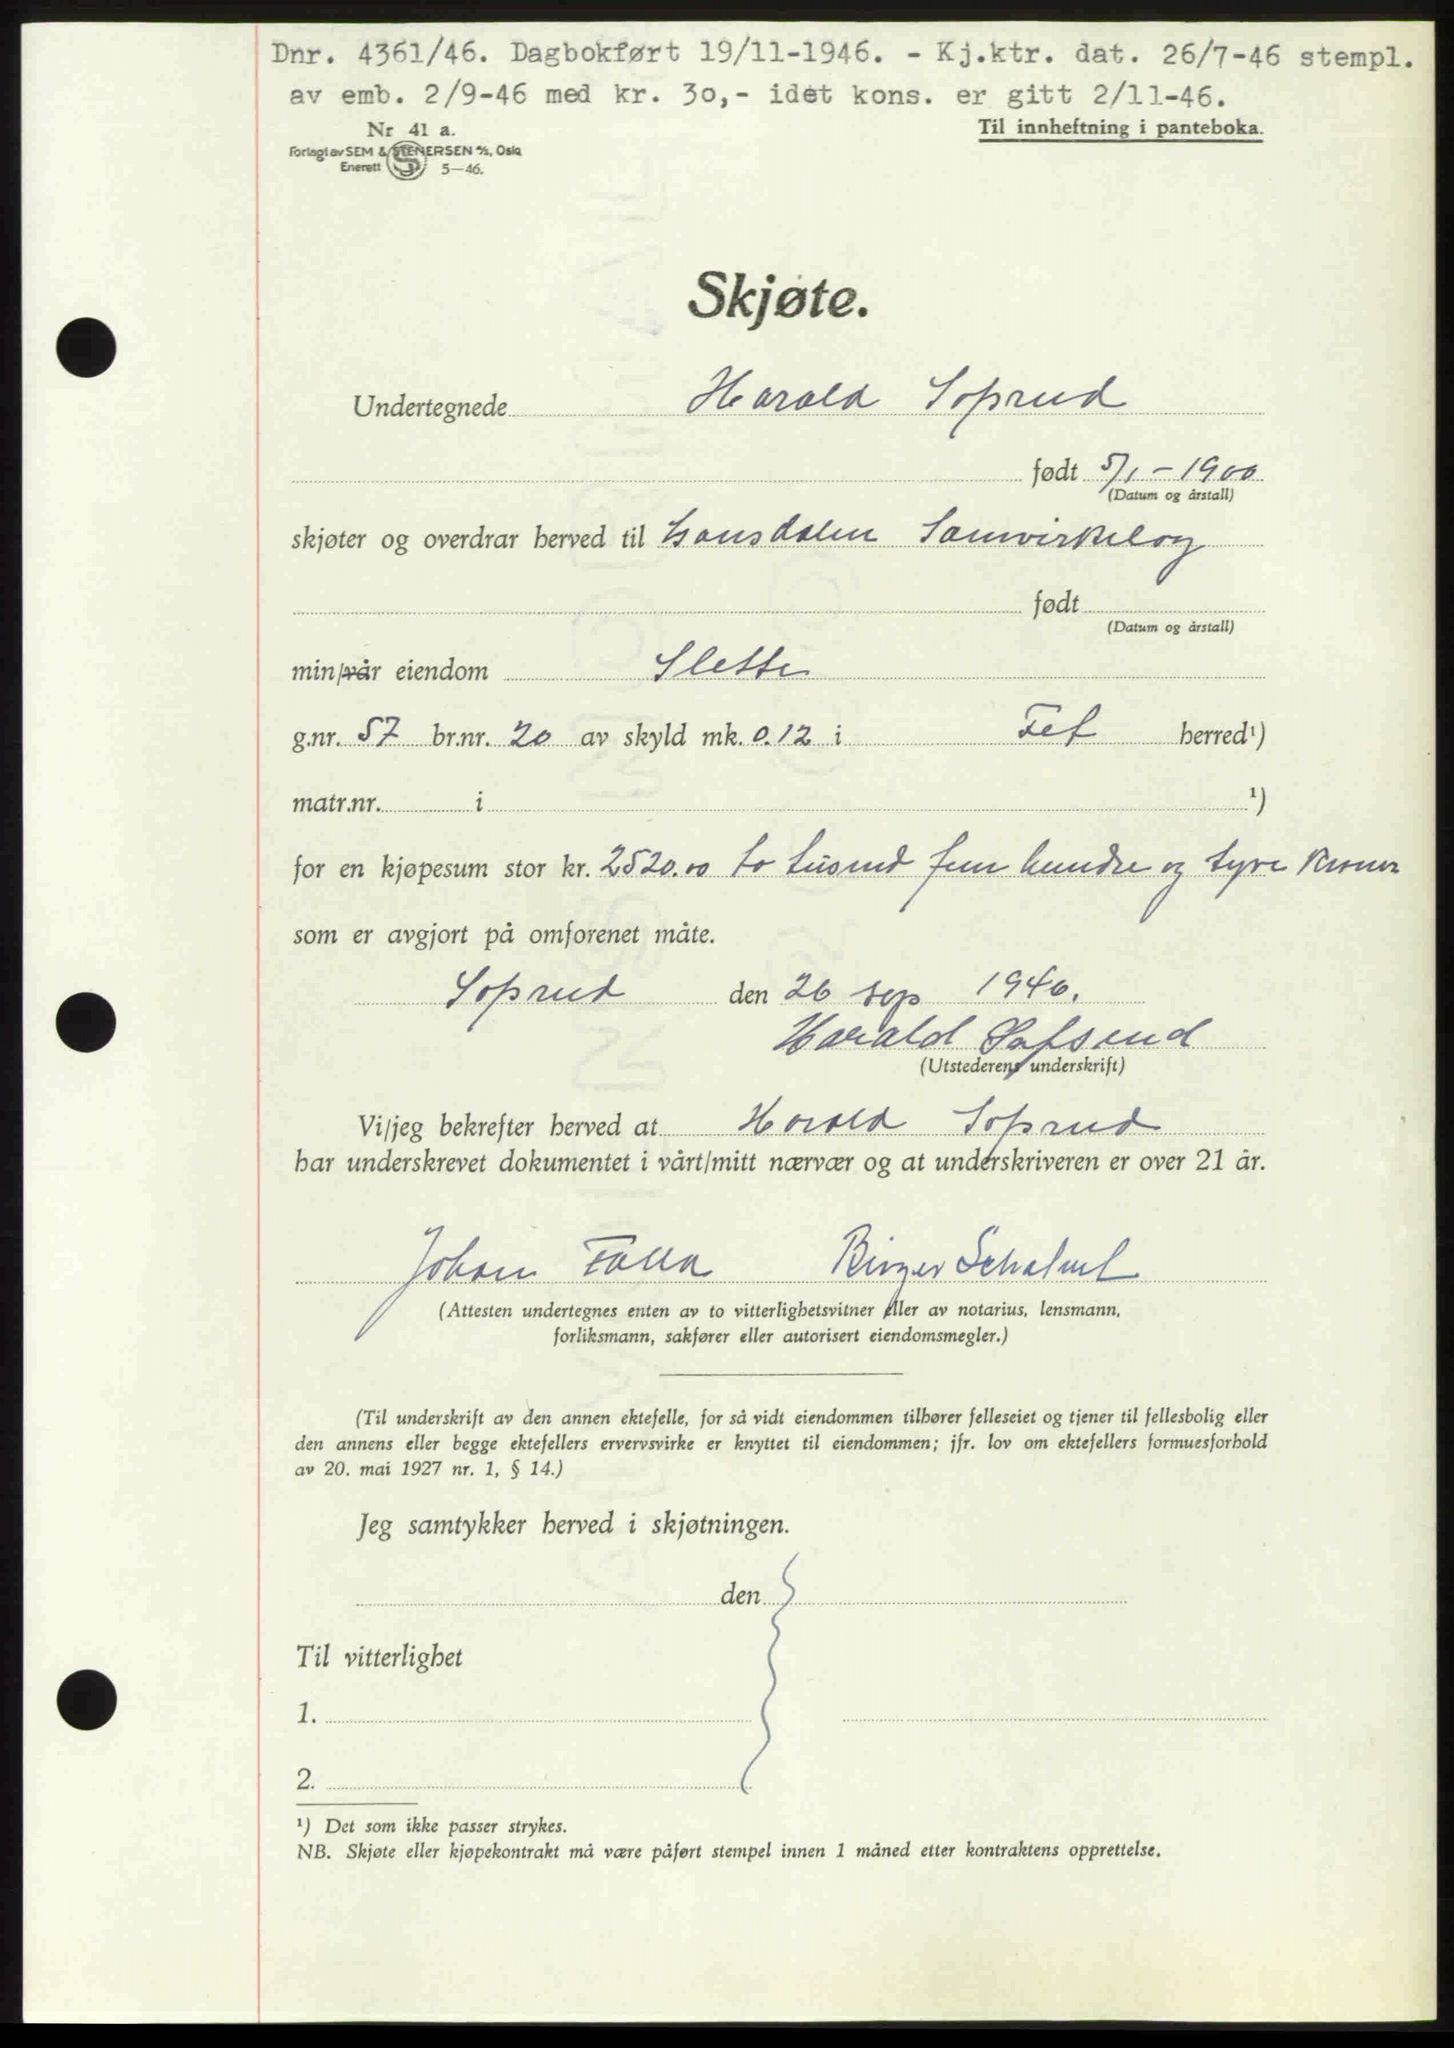 Dnr. 4361/46. Dagbokført 19/11-1946. - Kj.ktr. dat. 26/7-46 stempl.
av emb. 2/9-46 med kr. 30,- idet kons. er gitt 2/11-46.
Nr 41 a.
Til innheftning i panteboka.
Forlagt av SEM & STENERSEN A/S, Oslo
Enerett 5-46.
Skjøte.
Undertegnede Harald Soprud
født 5/1-1900
(Datum og årstall)
skjøter og overdrar herved til Samvirkelag
født
(Datum og årstall)
min/vår eiendom Slette
g.nr. 57 br.nr. 20 av skyld mk. 0.12 i Fet herred¹)
matr.nr. i ¹)
for en kjøpesum stor kr. 2520.00 to tusend fem hundre og tyve kroner
som er avgjort på omforenet måte.
Soprud den 26 sep 1946.
Harald
(Utstederens underskrift)
Vi/jeg bekrefter herved at Harald Soprud
har underskrevet dokumentet i vårt/mitt nærvær og at underskriveren er over 21 år.
Johan Falla Birger
(Attesten undertegnes enten av to vitterlighetsvitner eller av notarius, lensmann,
forliksmann, sakfører eller autorisert eiendomsmegler.)
(Til underskrift av den annen ektefelle, for så vidt eiendommen tilhører felleseiet og tjener til fellesbolig eller
den annens eller begge ektefellers ervervsvirke er knyttet til eiendommen; jfr. lov om ektefellers formuesforhold
av 20. mai 1927 nr. 1, § 14.)
Jeg samtykker herved i skjøtningen.
den
Til vitterlighet
1.
2.
¹) Det som ikke passer strykes.
NB. Skjøte eller kjøpekontrakt må være påført stempel innen 1 måned etter kontraktens opprettelse.